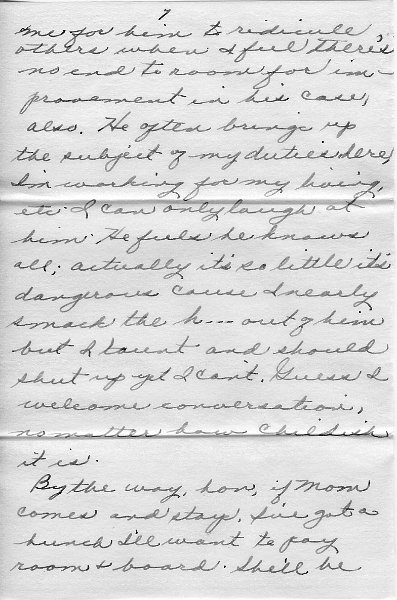 7
me for him to ridicule
others when I feel there's
no end to room for im-
provement in his case,
also. He often brings up
the subject of my duties here,
I'm working for my living,
etc. I can only laugh at
him. He feels he knows
all; actually it's so little it's
dangerous cause I nearly
smack the h--- out of him
but I taunt and should
shut up yet I can't. Guess I
welcome conversation,
no matter how childish
it is.
By the way, hon, if Mom
comes and stay, I've got a
hunch I'll want to pay
room & board. She'll be